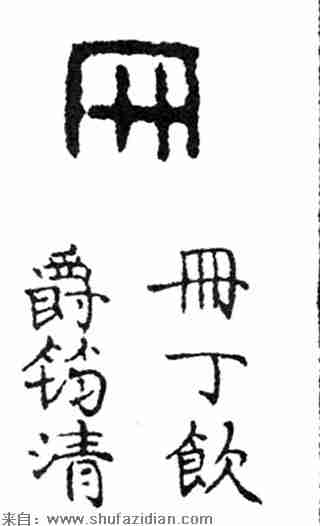 冊
冊丁飲
爵筠清
来自：www.shufazidian.com